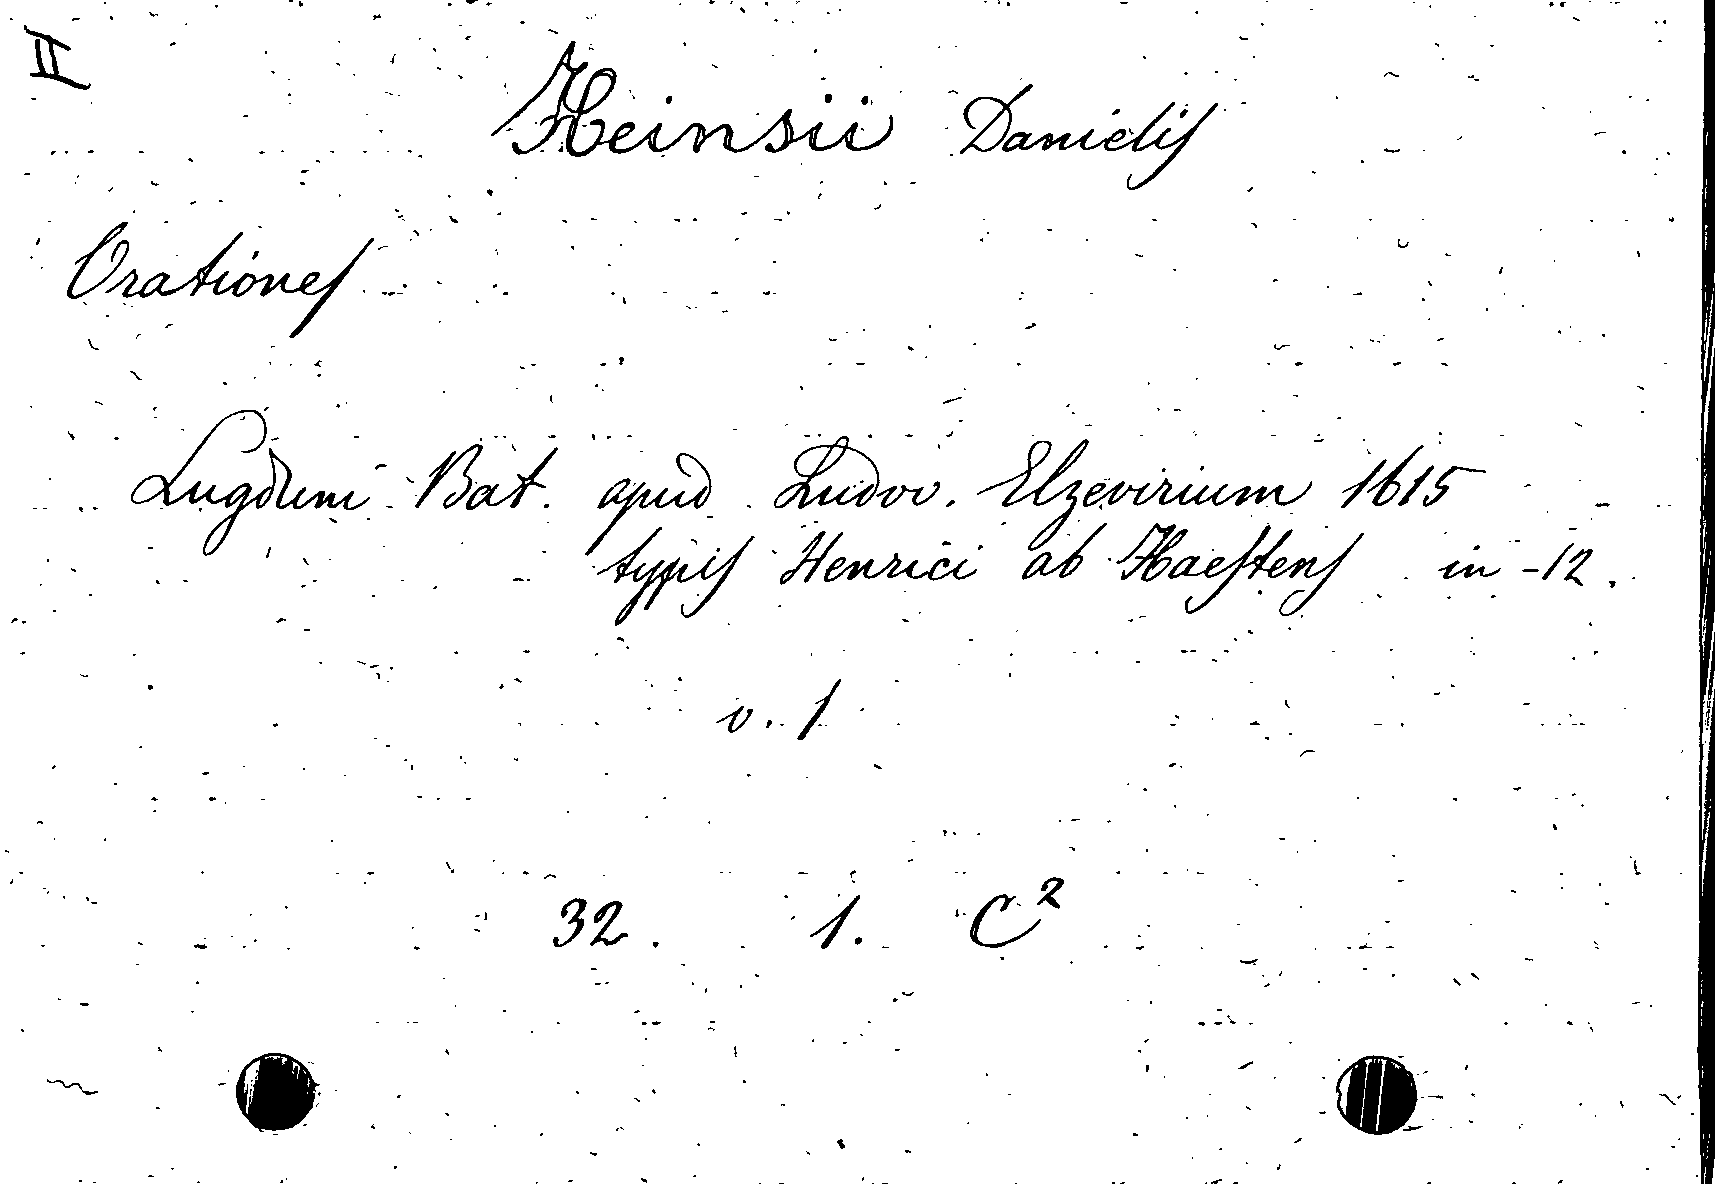 II
Heinsii Danielis
Orationes
Lugduni Bat. apud Ludov. Elzevirium 1615
typis Henrici ab Haestens in-12.
v. 1
32. 1. C²